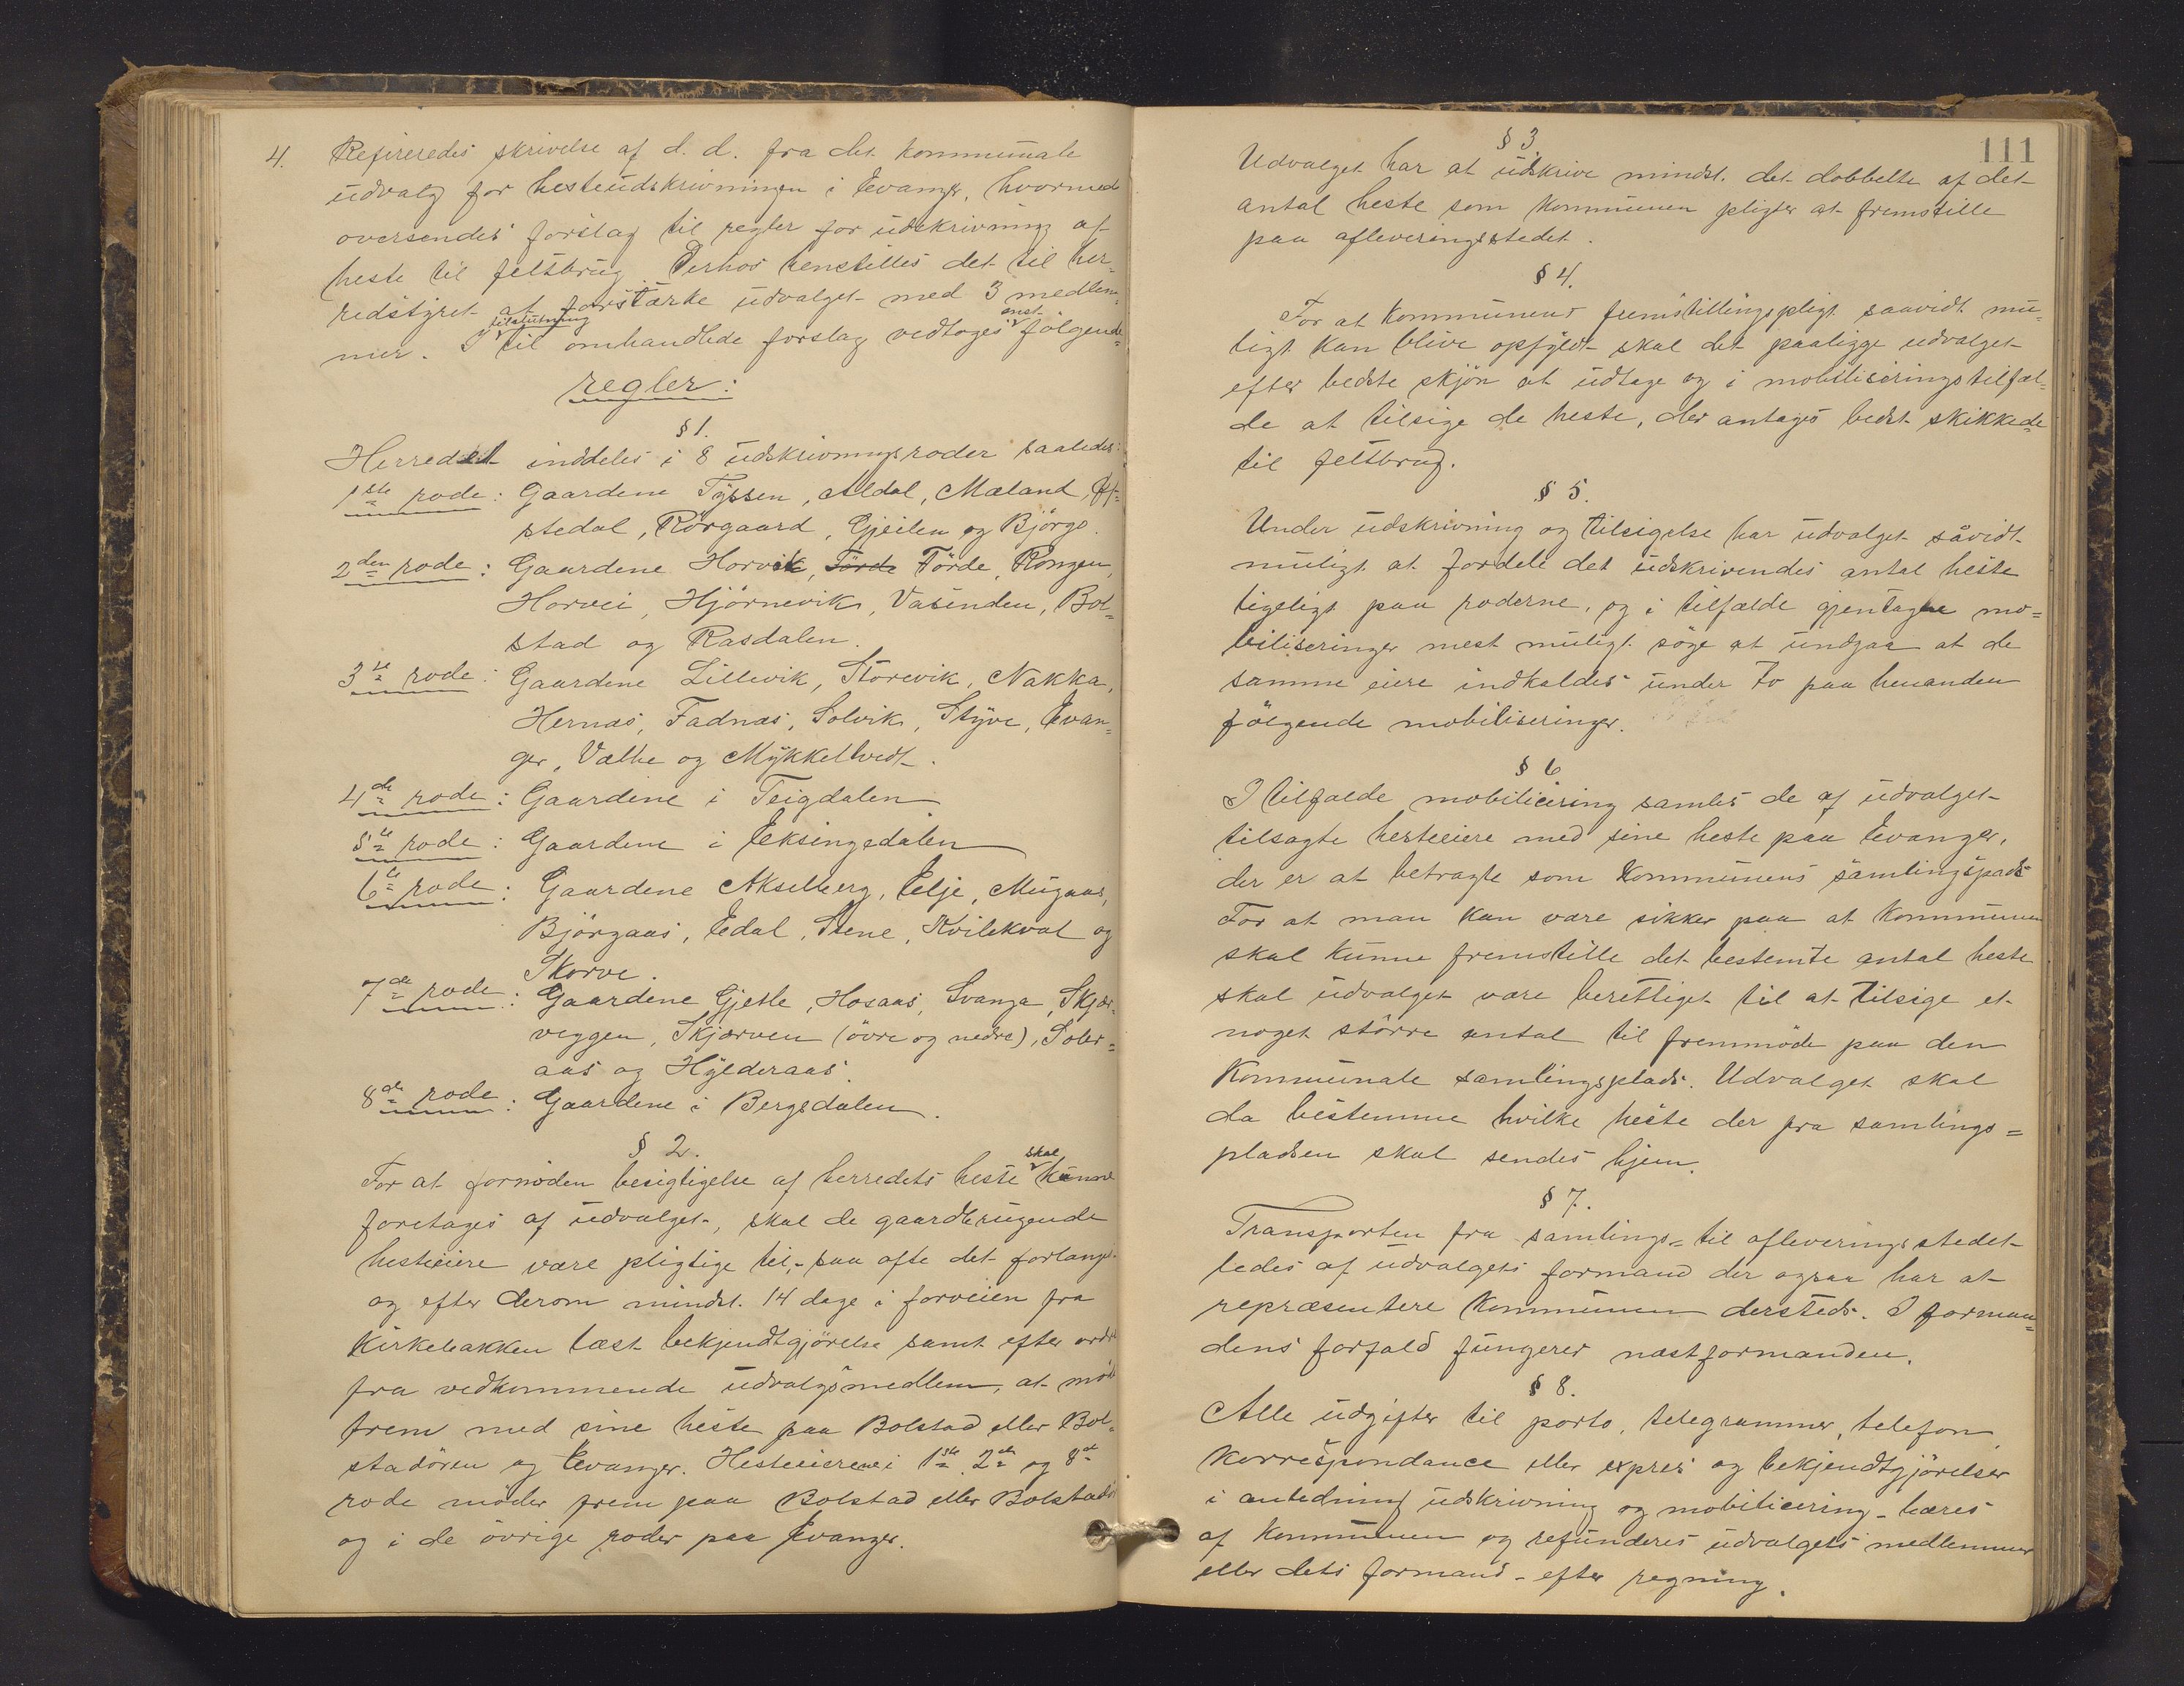 4. Refereredes skrivelse af d. d. fra det kommunale
udvalg for hesteudskrivningen i Evanger, hvormed
oversendes forslag til regler for udskrivning af
heste til feltbrug. Derhos henstilles det til her-
redstyret at forstærke udvalget med 3 medlem-
mer. I tilslutning til omhandlede forslag vedtoges enst. følgende
regler:
§ 1.
Herredet inddeles i 8 udskrivningsroder saaledes:
1ste rode: Gaardene Tyssen, Aldal, Mæland,
stedal, Rørgaard, Gjeilen og Bjørgo.
2den rode: Gaardene Horvik, Førde Førde, Rongen,
Horvei, Hjørnevik, Vasenden, Bol=
stad og Rasdalen.
3de rode: Gaardene Lillevik, Storevik, Nakka,
Hernæs, Fadnæs, Solvik, Styve, Evan=
ger, Væthe og Mykkeltvedt.
4de rode: Gaardene i Teigdalen
5te rode: Gaardene i Eksingedalen
6te rode: Gaardene Akselberg, Eelje, Mugaas,
Bjørgaas, Edal, Stene, Kvilekval og
Skorve.
7de rode: Gaardene Gjelle, Hosaas, Svanga, Skjer-
veggen, Skjerven (øvre og nedre), Soler=
aas og Hylderaas.
8de rode: Gaardene i Bergsdalen.
§ 2.
For at fornøden besigtigelse af herredets heste skal kunne
foretages af udvalget, skal de gaardbrugende
hesteeiere være pligtige til, - saa ofte det forlanges
og efter derom mindst 14 dage i forveien fra
kirkebakken læst bekjendtgjørelse samt efter ordre
fra vedkommende udvalgsmedlem, at møde
frem med sine heste paa Bolstad eller Bol-
stadøren og Evanger. Hesteeierene i 1ste 2de og 8de
rode møder frem paa Bolstad eller Bolstadø
og i de øvrige roder paa Evanger.
111
§ 3
Udvalget har at udskrive mindst det dobbelte af det
antal heste som kommunen pligter at fremstille
paa afleveringsstedet.
§ 4.
For at kommunens fremstillingspligt saavidt mu-
ligt kan blive opfyldt skal det paaligge udvalget
efter bedste skjøn at udtage og i mobiliseringstilfæl-
de at tilsige de heste, der antages bedst skikkede
til feltbrug.
§ 5.
Under udskrivning og tilsigelse har udvalget såvidt
muligt at fordele det udskrivendes antal heste
ligeligt paa roderne, og i tilfælde gjentagne mo=
biliseringer mest muligt søge at undgaa at de
samme eiere indkaldes under to paa henanden
følgende mobiliseringer.
§ 6
I tilfælde mobilicering samles de af udvalget
tilsagte hesteeiere med sine heste paa Evanger,
der er at betragte som kommunens samlingspads
For at man kan være sikker paa at kommunen
skal kunne fremstille det bestemte antal heste
skal udvalget være berettiget til at tilsige et
noget større antal til fremmøde paa den
kommunale samlingsplads. Udvalget skal
da bestemme hvilke heste der fra samlings=
pladsen skal sendes hjem.
§ 7.
Transporten fra samlings= til afleveringsstedet
ledes af udvalgets formand der ogsaa har at
repræsentere kommunen dersteds. I forman=
dens forfald fungerer næstformanden.
§ 8.
Alle udgifter til porto, telegrammer, telefon,
korrespondance eller expres og bekjendtgjørelser
i anledning udskrivning og mobilicering - bæres
af kommunen og refunderes udvalgets medlemmer
eller dets formand - efter regning.